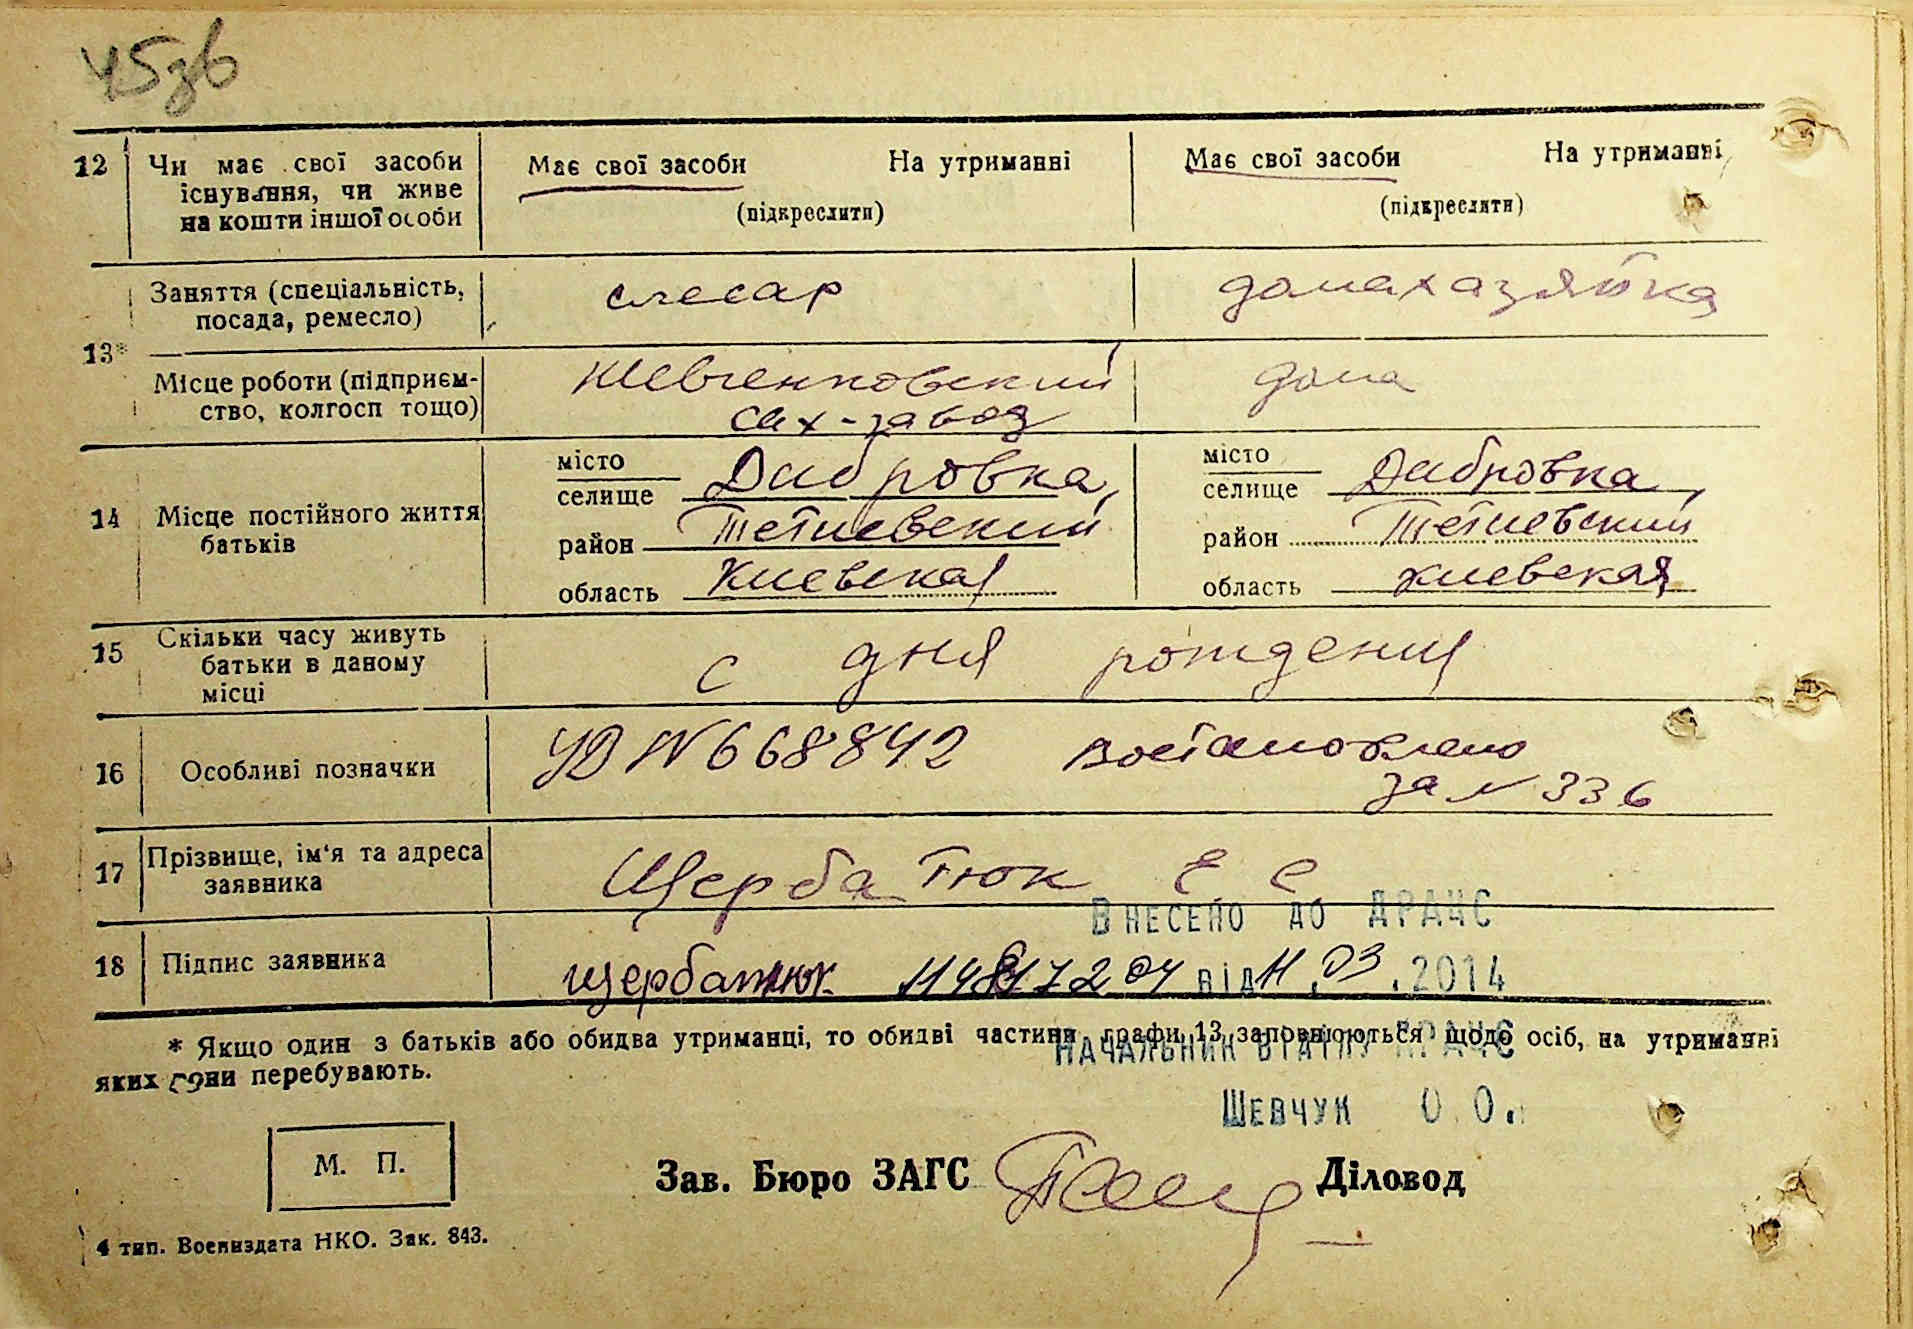 45зв
12 Чи має свої засоби існування, чи живе на кошти іншої особи
Має свої засоби На утриманні
(підкреслити)
Має свої засоби На утриманні
(підкреслити)
13*
Заняття (спеціальність, посада, ремесло)
слесар
домахазяйка
Місце роботи (підприєм-
ство, колгосп тощо)
Шевченковский
сах-завод
дома
14 Місце постійного життя
батьків
місто
селище Дибровка,
район Тетиевский
область Киевская
місто
селище Дибровка,
район Тетиевский
область Киевская
15 Скільки часу живуть
батьки в даному
місці
с дня рождения
16 Особливі позначки
УД N 668842 востановлено
за N 336
17 Прізвище, ім'я та адреса
заявника
Щербатюк Е С
Внесено до ДРАЦС
18 Підпис заявника
Щербатюк від 11.03.2014
* Якщо один з батьків або обидва утриманці, то обидві частини графи 13 заповнюються щодо осіб, на утриманні
яких вони перебувають.
Начальник відділу ДРАЦС
Шевчук О.О.
М. П.
Зав. Бюро ЗАГС Діловод
4 тип. Воениздата НКО. Зак. 843.